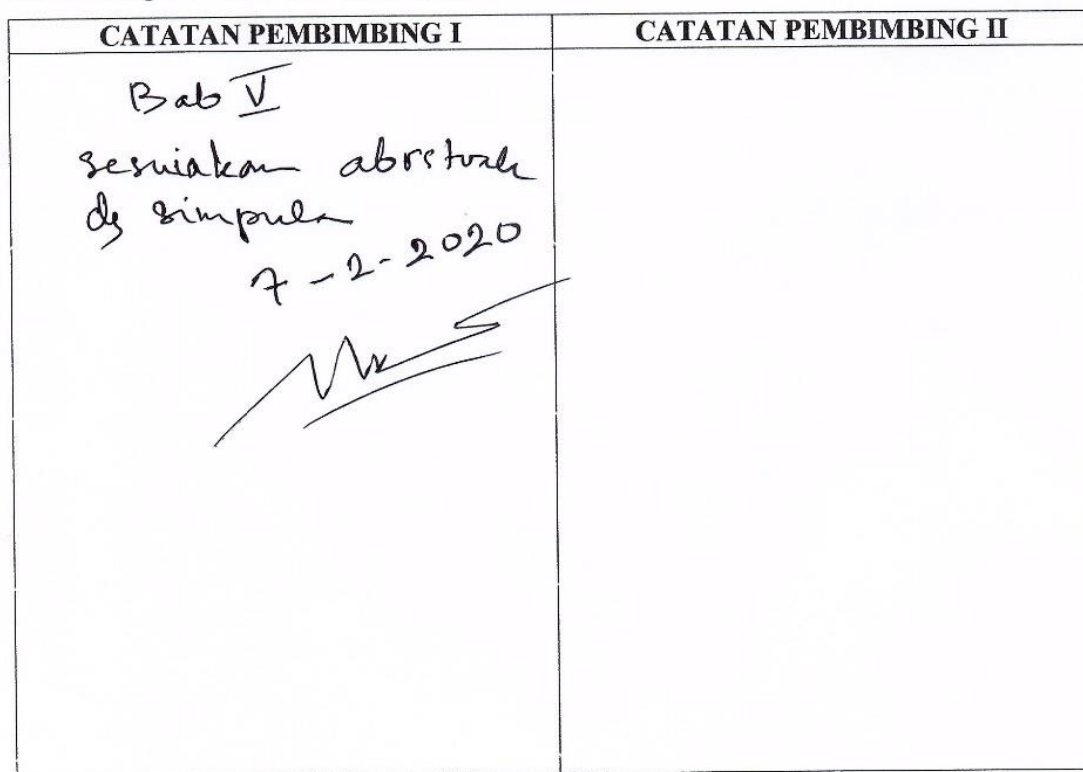 CATATAN PEMBIMBING I
CATATAN PEMBIMBING II
Bab V
sesuiakan abrstrak
dg simpula
7-2-2020